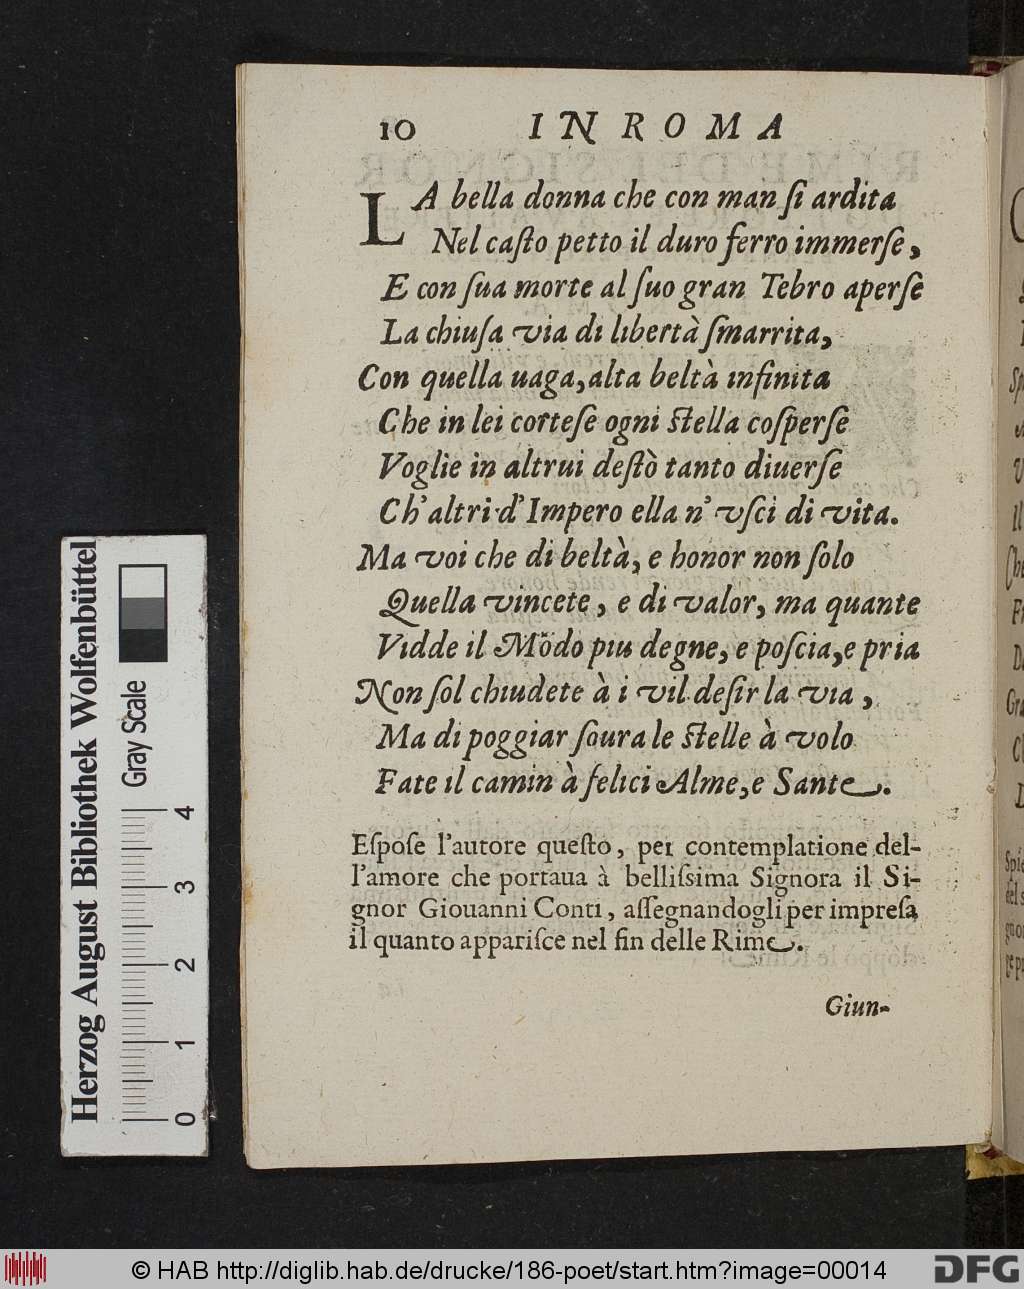 10 IN ROMA
LA bella donna che con man ſi ardita
Nel caſto petto il duro ferro immerſe,
E con ſua morte al ſuo gran Tebro aperſe
La chiuſa via di libertà ſmarrita,
Con quella uaga, alta beltà infinita
Che in lei corteſe ogni ſtella coſperſe
Voglie in altrui deſtò tanto diuerſe
Ch' altri d' Impero ella n' vſcì di vita.
Ma voi che di beltà, e honor non ſolo
Quella vincete, e di valor, ma quante
Vidde il Mōdo piu degne, e poſcia, e pria
Non ſol chiudete à i vil deſir la via,
Ma di poggiar ſoura le ſtelle à volo
Fate il camin à felici Alme, e Sante.
Eſpoſe l'autore queſto, per contemplatione del-
l'amore che portaua à belliſsima Signora il Si-
gnor Giouanni Conti, aſſegnandogli per impreſa
il quanto appariſce nel fin delle Rime.
Giun-
Herzog August Bibliothek Wolfenbüttel
Gray Scale
0 1 2 3 4
© HAB http://diglib.hab.de/drucke/186-poet/start.htm?image=00014
DFG